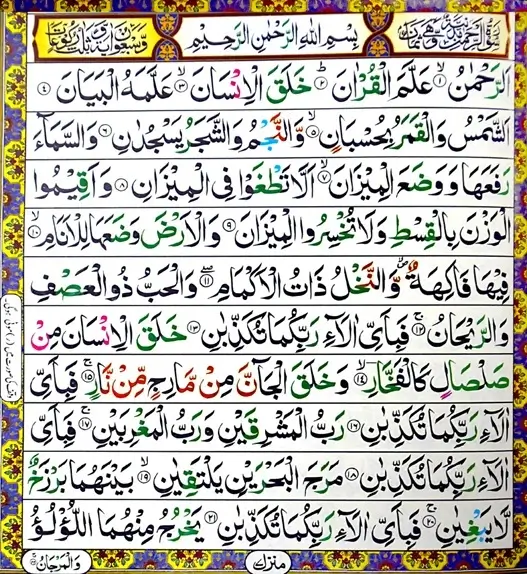 بِسْمِ اللهِ الرَّحْمٰنِ الرَّحِيْمِ
اَلرَّحْمٰنُ ۙ﴿۱﴾ عَلَّمَ الْقُرْاٰنَ ؕ﴿۲﴾ خَلَقَ الْاِنْسَانَ ۙ﴿۳﴾ عَلَّمَهُ الْبَيَانَ ﴿۴﴾
اَلشَّمْسُ وَالْقَمَرُ بِحُسْبَانٍ ۙ﴿۵﴾ وَّالنَّجْمُ وَالشَّجَرُ يَسْجُدٰنِ ﴿۶﴾ وَالسَّمَآءَ
رَفَعَهَا وَوَضَعَ الْمِيْزَانَ ۙ﴿۷﴾ اَلَّا تَطْغَوْا فِى الْمِيْزَانِ ﴿۸﴾ وَاَقِيْمُوا
الْوَزْنَ بِالْقِسْطِ وَلَا تُخْسِرُوا الْمِيْزَانَ ﴿۹﴾ وَالْاَرْضَ وَضَعَهَا لِلْاَنَامِ ۙ﴿۱۰﴾
فِيْهَا فَاكِهَةٌ ۪ۙ وَّالنَّخْلُ ذَاتُ الْاَكْمَامِ ۖ﴿۱۱﴾ وَالْحَبُّ ذُو الْعَصْفِ
وَالرَّيْحَانُ ۚ﴿۱۲﴾ فَبِاَىِّ اٰلَآءِ رَبِّكُمَا تُكَذِّبٰنِ ﴿۱۳﴾ خَلَقَ الْاِنْسَانَ مِنْ
صَلْصَالٍ كَالْفَخَّارِ ۙ﴿۱۴﴾ وَخَلَقَ الْجَآنَّ مِنْ مَّارِجٍ مِّنْ نَّارٍ ۚ﴿۱۵﴾ فَبِاَىِّ
اٰلَآءِ رَبِّكُمَا تُكَذِّبٰنِ ﴿۱۶﴾ رَبُّ الْمَشْرِقَيْنِ وَرَبُّ الْمَغْرِبَيْنِ ۚ﴿۱۷﴾ فَبِاَىِّ
اٰلَآءِ رَبِّكُمَا تُكَذِّبٰنِ ﴿۱۸﴾ مَرَجَ الْبَحْرَيْنِ يَلْتَقِيٰنِ ۙ﴿۱۹﴾ بَيْنَهُمَا بَرْزَخٌ
لَّا يَبْغِيٰنِ ۚ﴿۲۰﴾ فَبِاَىِّ اٰلَآءِ رَبِّكُمَا تُكَذِّبٰنِ ﴿۲۱﴾ يَخْرُجُ مِنْهُمَا اللُّؤْلُؤُ
وَالْمَرْجَانُ ۚ﴿۲۲﴾